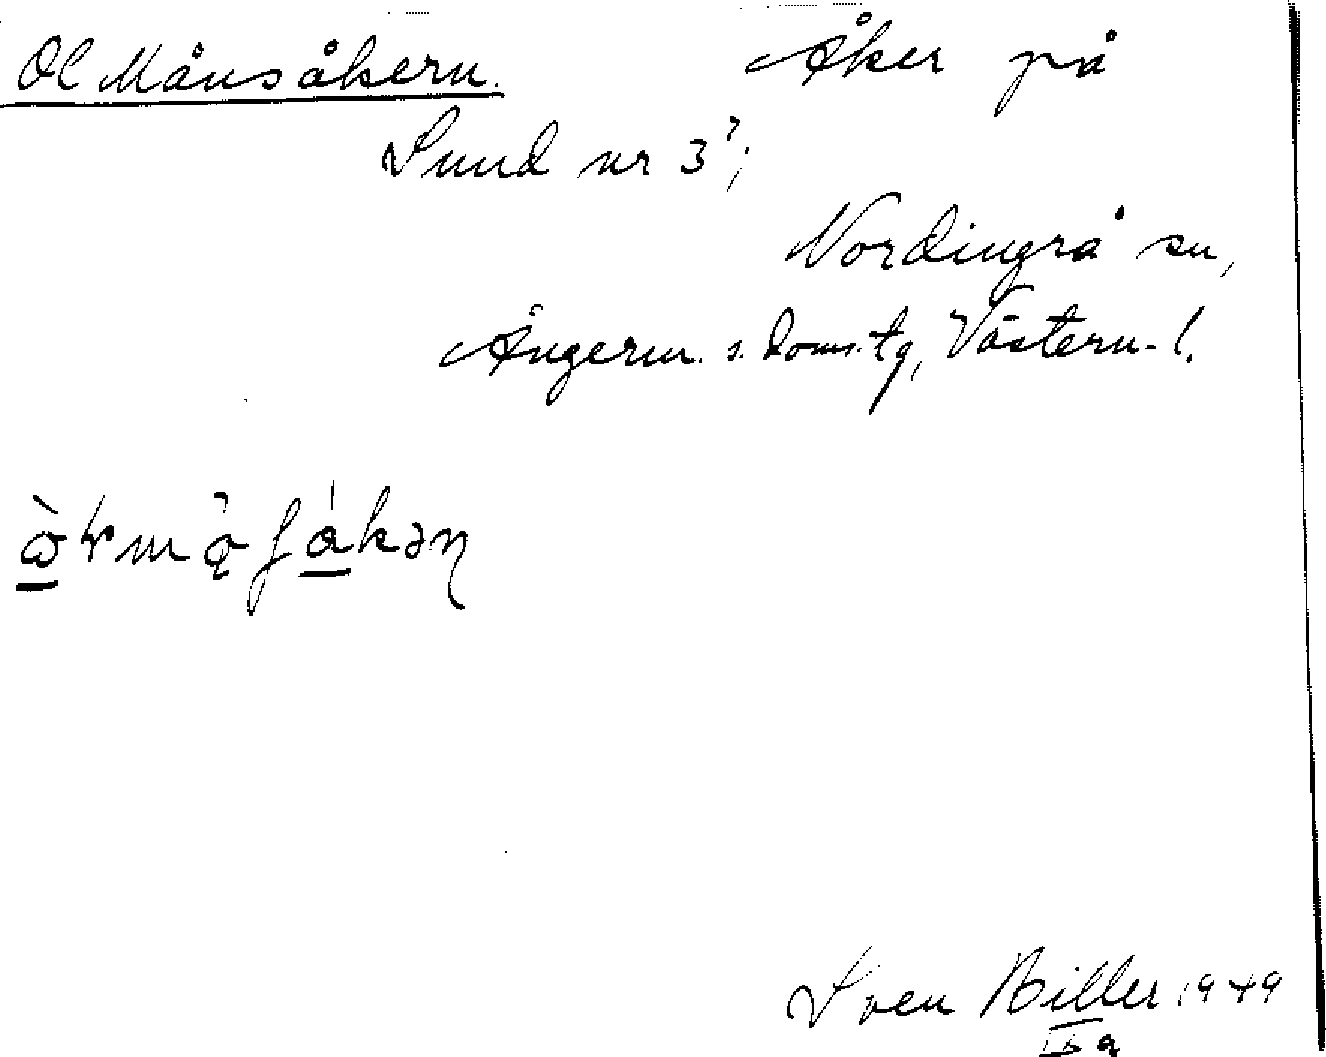 Ol Månsåkern. Åker på
Sund nr 3⁷;
Nordingrå sn,
Ångerm. s. doms. tg, Västern. l.
Sven Biller 1949